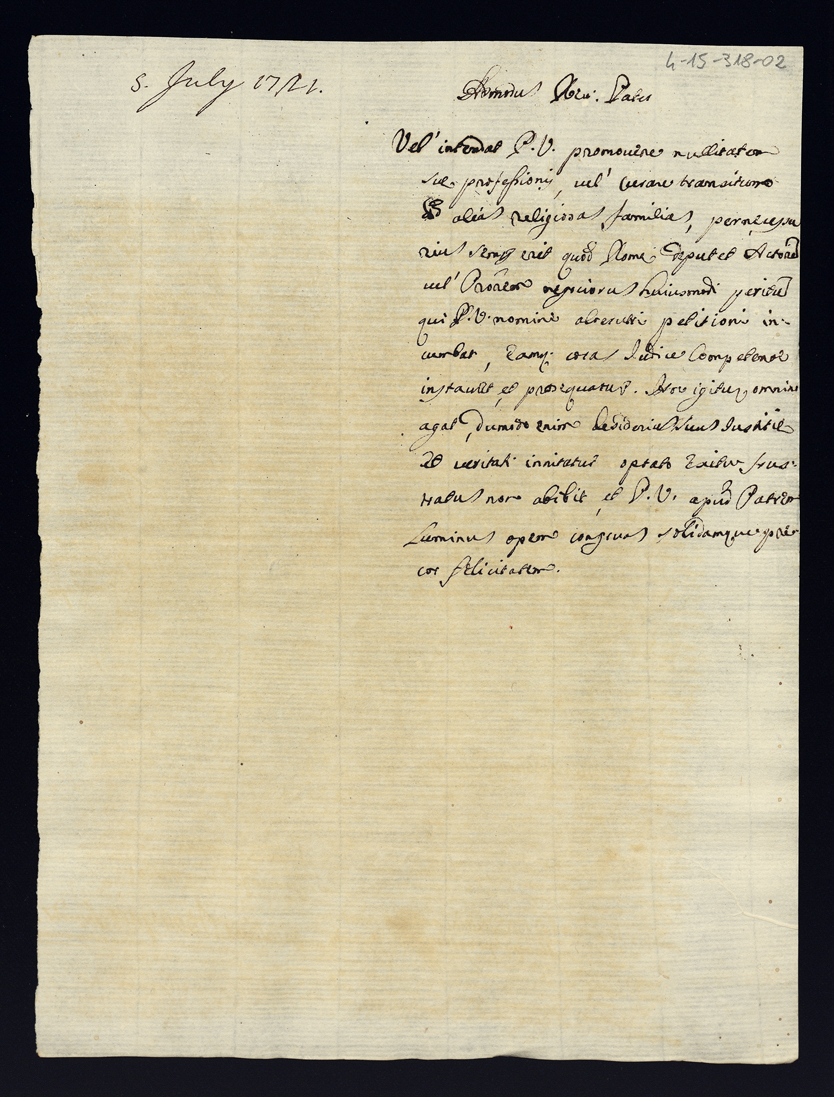 4-15-318-02
5. July 1721.
Admodus Rev: Pater
Vel' intendat P. V. promovere nullitatem
suę professionis, vel' curare transitum
ad alias religiosas familias, pernecessa
rius semp erit quod Romę deputet Actorē
vel' Procrēm negociorus huiusmodi peritū
qui P. V. nomine alterutri petitioni in-
cumbat, eamq. coras Iudice Competente
instauret, et prosequatur. Hoc igitur omnino
agat, dumodo enim desiderius suus Iustitię
et veritati innitatur optato exitu frus-
tratus non abibit, et P. V. apud Patrem
Luminus opem congruas solidamque pre-
cor felicitatem.